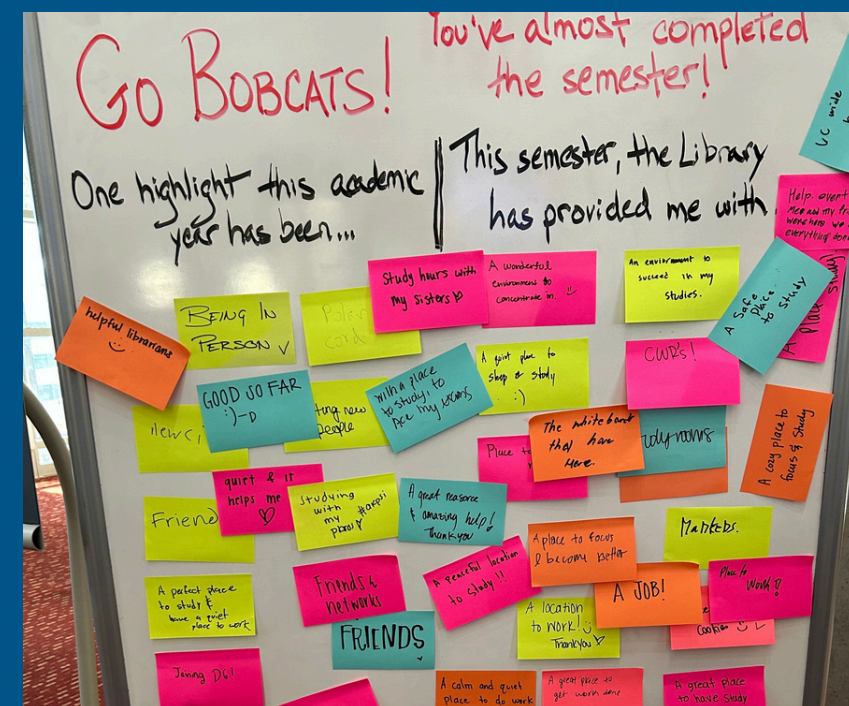 GO BOBCATS!
You've almost completed
the semester!
One highlight this academic
year has been...
This semester, the Library
has provided me with
UC wide
Help. event
everything done
Study hours with
my sisters
A wonderful
environment to
concentrate in.
An enviornment to
succeed in my
studies.
A Safe
Place.
to Study
A place
study
helpful librarians
:)
BEING IN
PERSON
GOOD SO FAR
:)-D
new
people
with a place
to study, to
Ace my exams
A quiet place to
shop & study
:)
CWR's!
The whiteboard
they have
Here.
Place to
rooms
A cozy place to
focus & Study
quiet & it
helps me
Friend
Studying
with
my
A great resource
& amazing help!
Thank you
A place to focus
& become better
Markers.
A perfect place
to study &
have a quiet
place to work
Friends &
networks
A peaceful location
to study !!
A JOB!
Place to
Work
A location
to work!
Thank you
Cookies
FRIENDS
Joining DG!
A calm and quiet
place to do work
A great place to
get work done
A great place
to have Study